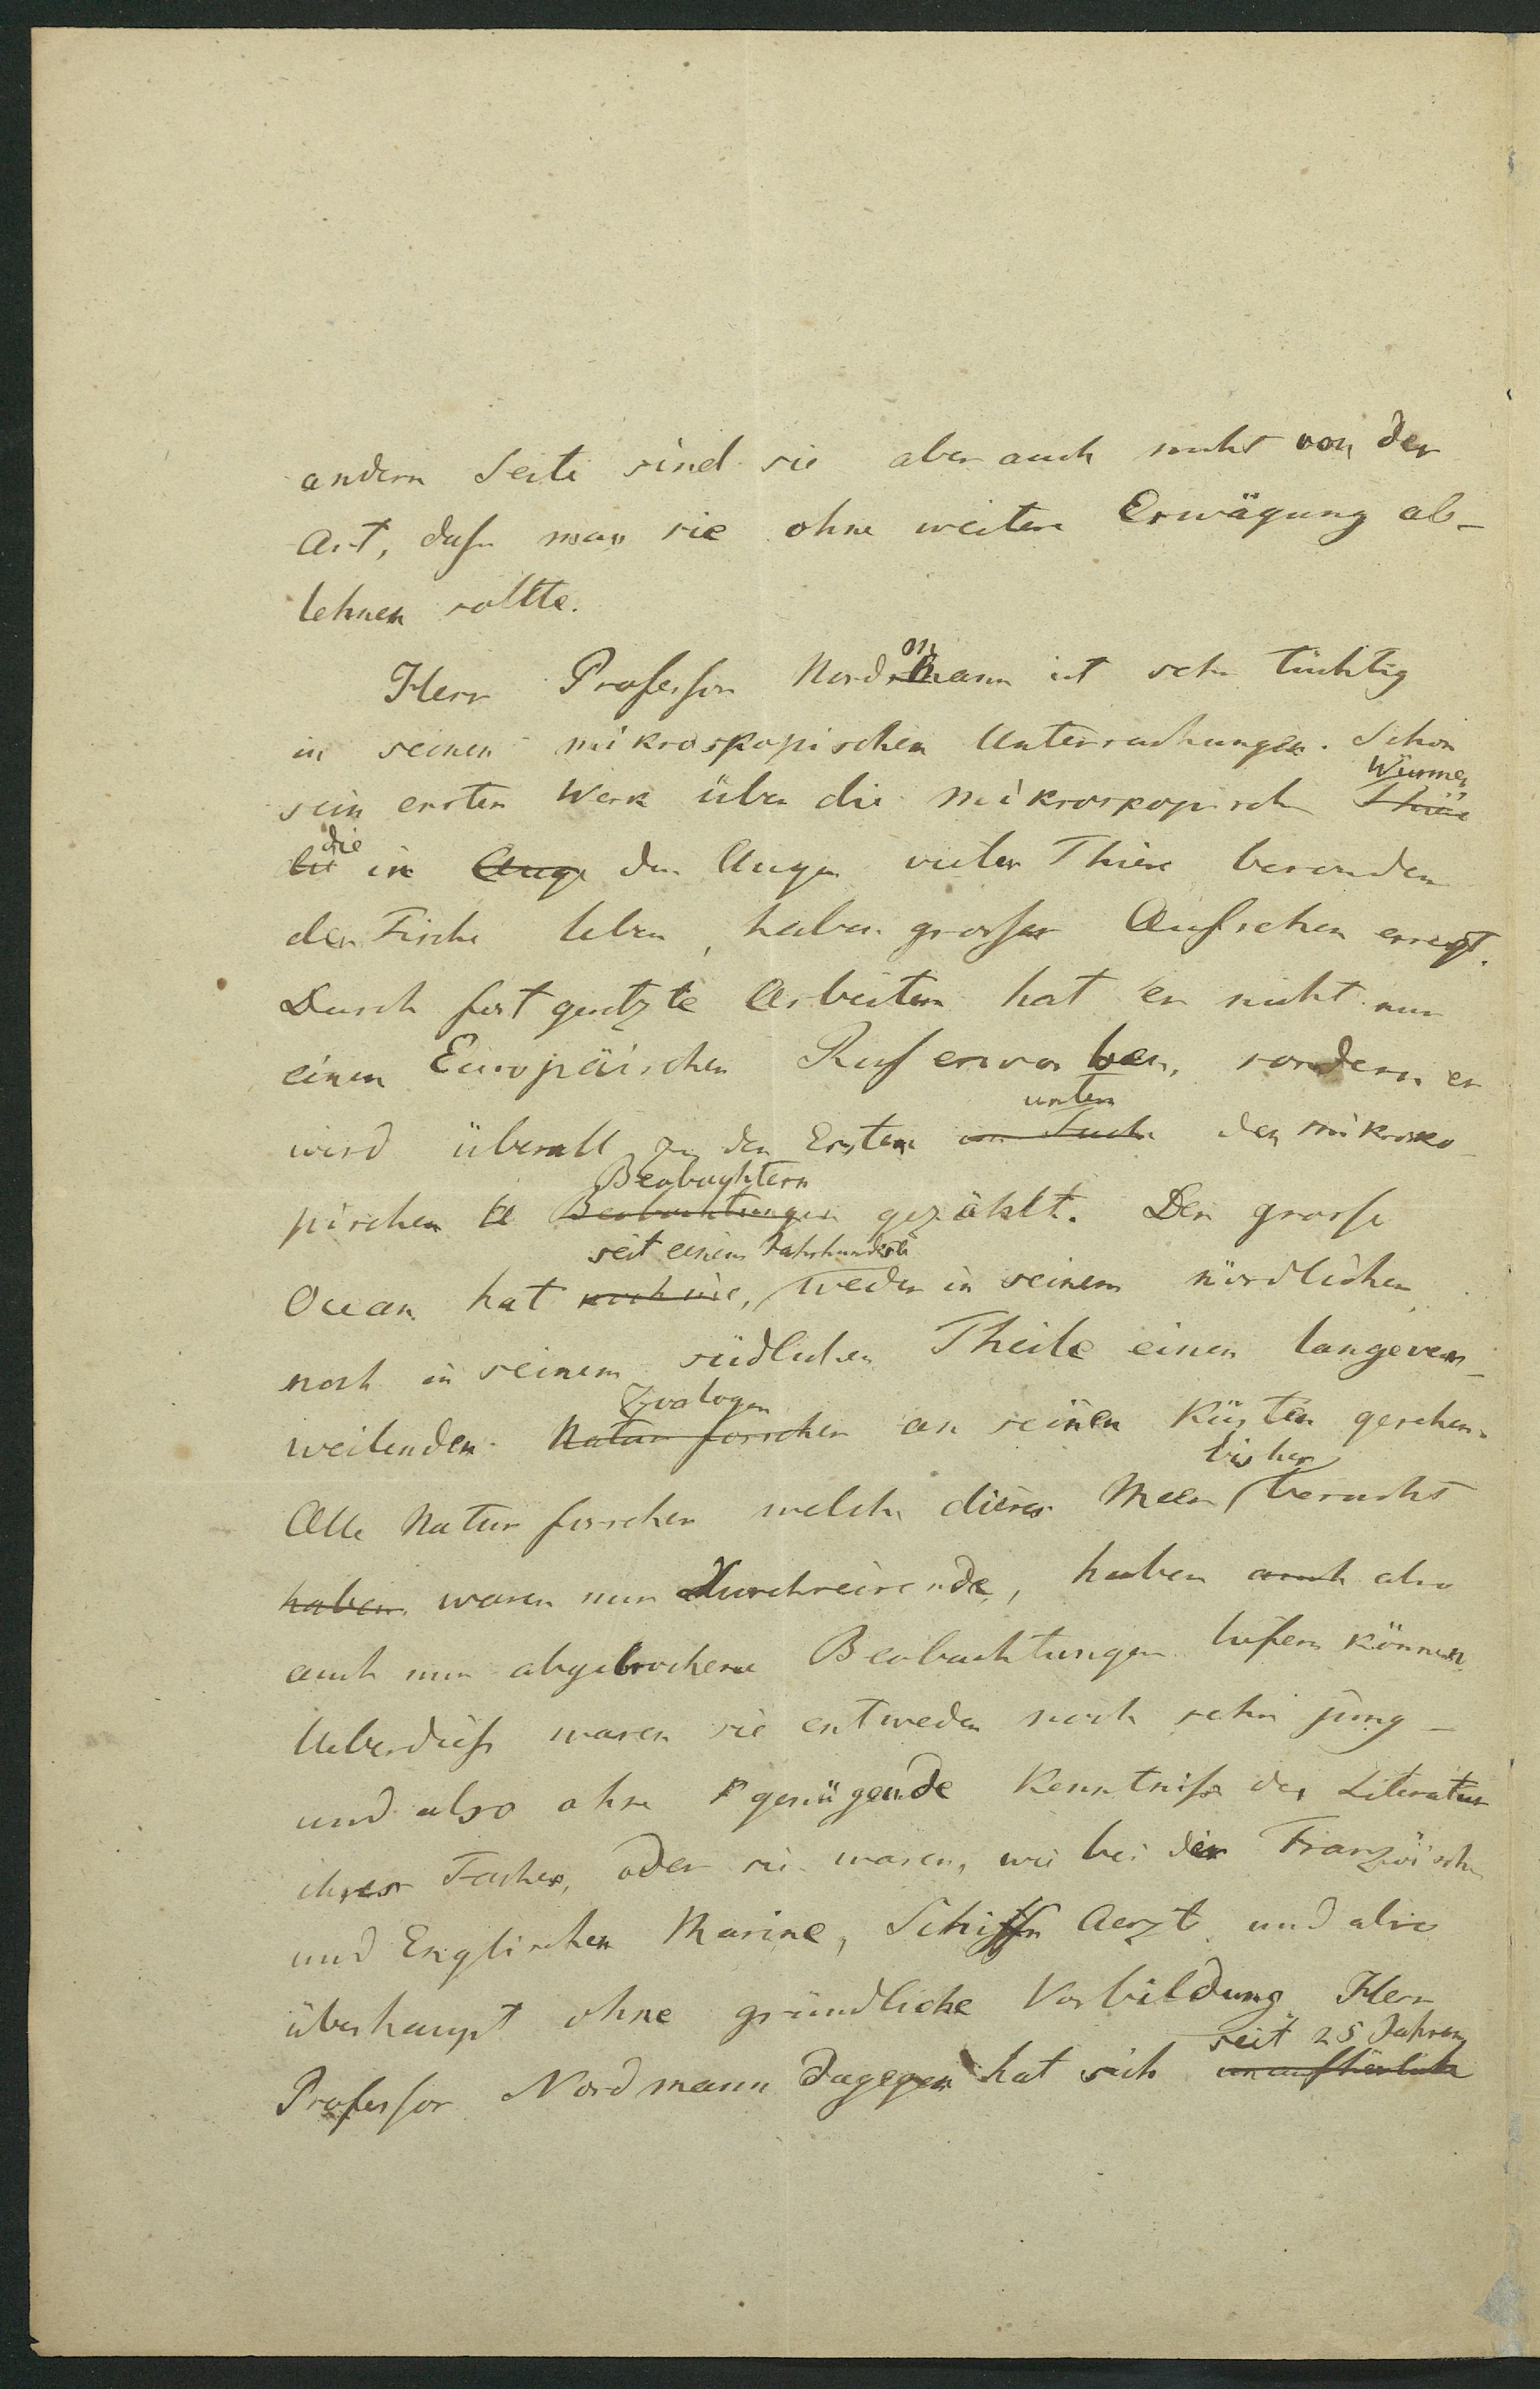 andern Seite sind sie aber auch nicht von der
Art, daſs man sie ohne weitere Erwägung ab-
lehnen sollte.
Herr Profeſsor Nordmann ist sehr tüchtig
in seinen mikroskopischen Untersuchungen. Schon
sein erstes Werk über die mikroskopisch Würmer
Thiere
die in Auge den Augen vieler Thiere besonders
der Fische leben, haben groſses Aufsehen erregt.
Durch fortgesetzte Arbeiten hat er nicht nur
einen Europäischen Ruf erworben, sondern er
unter
wird überall zu den Ersten im Fache der mikrosko-
Beobachtern
pischen Beobachtungen gezählt. Der groſse
seit einem Jahrhunderte
Ocean hat noch nie, weder in seinem nördlichen
noch in seinem südlichen Theile einen langever-
Zoologen
weilenden Naturforscher an seinen Küsten gesehen.
bisher
Alle Naturforscher welche dieses Meer besucht
haben waren nur Durchreisende, haben auch also
auch nur abgebrochene Beobachtungen liefern können
Ueberdieſs waren sie entweder noch sehr jung -
und also ohne genügende Kenntniſs der Literatur
ihres Faches, oder sie waren, wie bei der Französisch
und Englischen Marine, Schiffs Aerzte und also
überhaupt ohne gründliche Vorbildung. Herr
seit 25 Jahren
Profeſsor Nordmann dagegen hat sich unaufhörlich